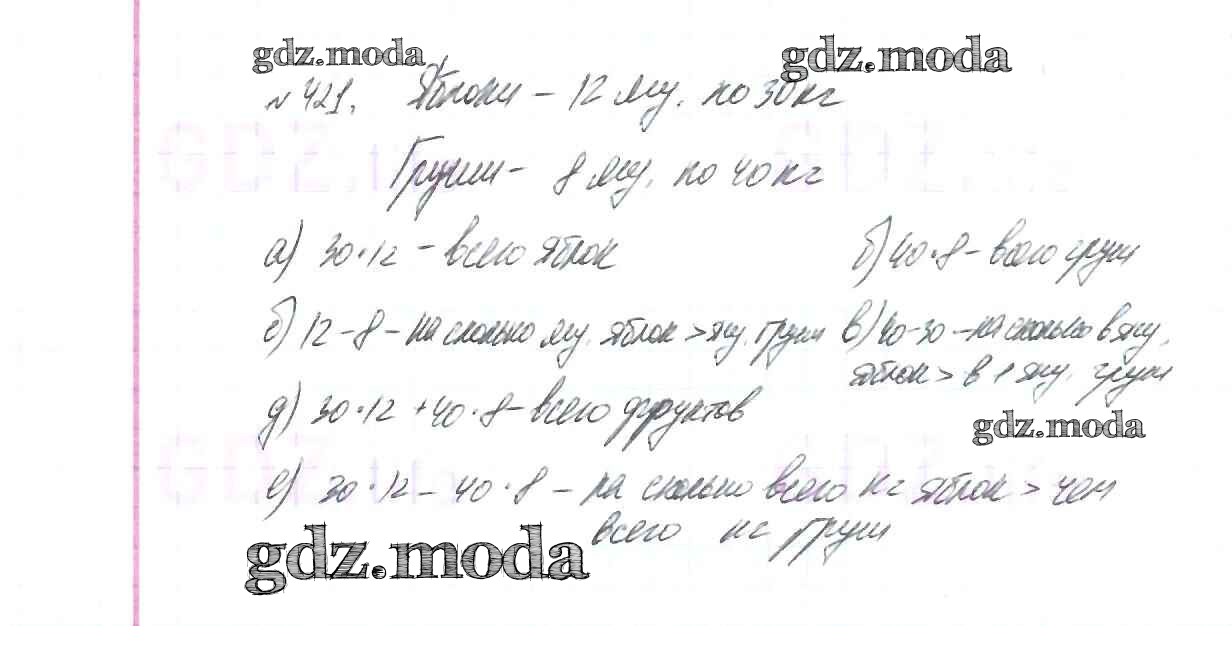 gdz.moda gdz.moda
№ 421. Яблоки - 12 ящ. по 30 кг
Груши - 8 ящ. по 40 кг
а) 30·12 - всего яблок б) 40·8 - всего груш
с) 12 - 8 - на сколько ящ. яблок > ящ. груш в) 40-30 - на сколько в ящ.
яблок > в 1 ящ. груш
д) 30·12 + 40·8 - всего фруктов
gdz.moda
е) 30·12 - 40·8 - на сколько всего кг яблок > чем
всего кг груш
gdz.moda